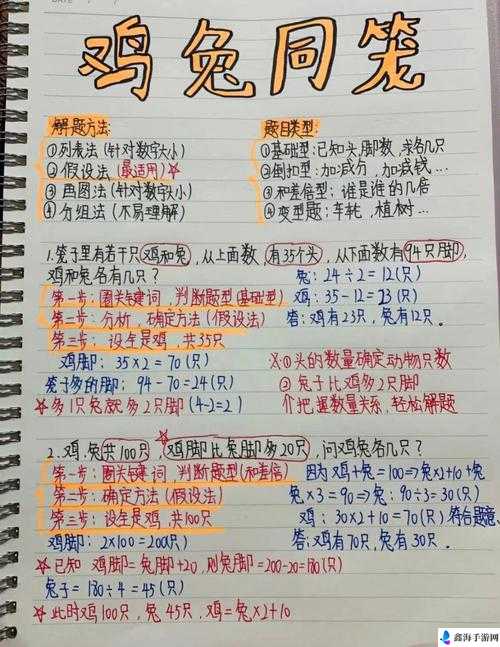 鸡兔同笼
解题方法:
①列表法(针对数字大小)
②假设法(最适用)☆
③画图法(针对数字大小)
④分组法(不易理解)
题目类型:
①基础型:已知头,脚数,求各几只
②倒扣型:加.减分,加.减钱...
③和差倍型:谁是谁的几倍
④变型题:车轮,植树...
1.笼子里有若干只鸡和兔,从上面数,有35个头,从下面数有94只脚,
鸡和兔各有几只?
第一步:圈关键词,判断题型(基础型)
第二步:分析,确定方法(假设法)
第三步:设全是鸡,共35只
鸡脚:35×2=70(只)
笼子多的脚:94-70=24(只)
☆多1只兔就多2只脚(4-2=2)
兔:24÷2=12(只)
鸡:35-12=23(只)
答:鸡有23只,兔有12只.
※①头的数量确定动物只数
②兔子比鸡多2只脚
个把握数量关系,轻松解题
2.鸡.兔共100只,鸡脚比兔脚多20只,问鸡兔各几只?
第一步:圈关键词 判断题型(和差倍)
第二步:确定方法(假设法)
第三步:设全是鸡,共100只
鸡脚:2×100=200(只)
☆已知 鸡脚=兔脚+20,则兔脚=200-20=180(只)
兔子=180÷4=45(只)
☆此时鸡100只,兔45只,鸡=兔×2+10
因为鸡+兔=100⇒兔×2+10+兔
兔×3=90⇒兔:90÷3=30(只)
鸡:30×2+10=70(只)符合题意
答:鸡有70只,兔有30只.
鑫海手游网